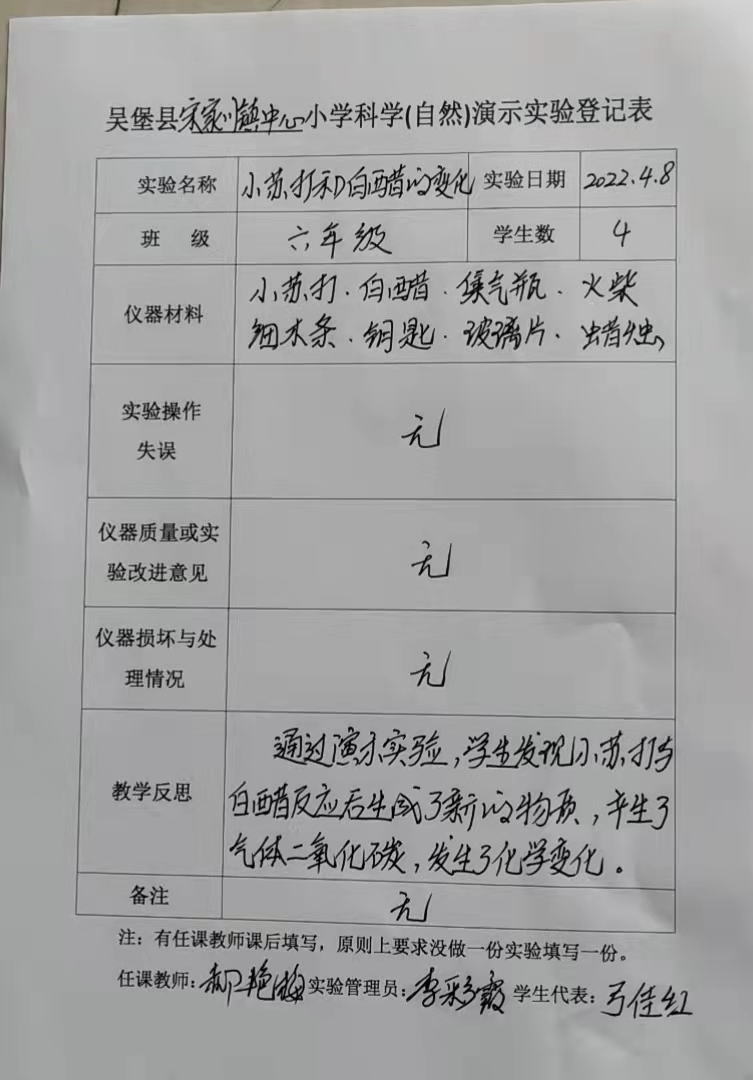 吴堡县宋家川镇中心小学科学(自然)演示实验登记表
实验名称 小苏打和白醋的变化 实验日期 2022.4.8
班 级 六年级 学生数 4
仪器材料 小苏打.白醋.集气瓶.火柴
细木条.钥匙.玻璃片.蜡烛
实验操作
失误
无
仪器质量或实
验改进意见
无
仪器损坏与处
理情况
无
教学反思
通过演示实验,学生发现小苏打与
白醋反应后生成了新的物质,产生了
气体二氧化碳,发生了化学变化。
备注 无
注：有任课教师课后填写，原则上要求没做一份实验填写一份。
任课教师:郝艳梅 实验管理员:李彩霞 学生代表:弓佳红